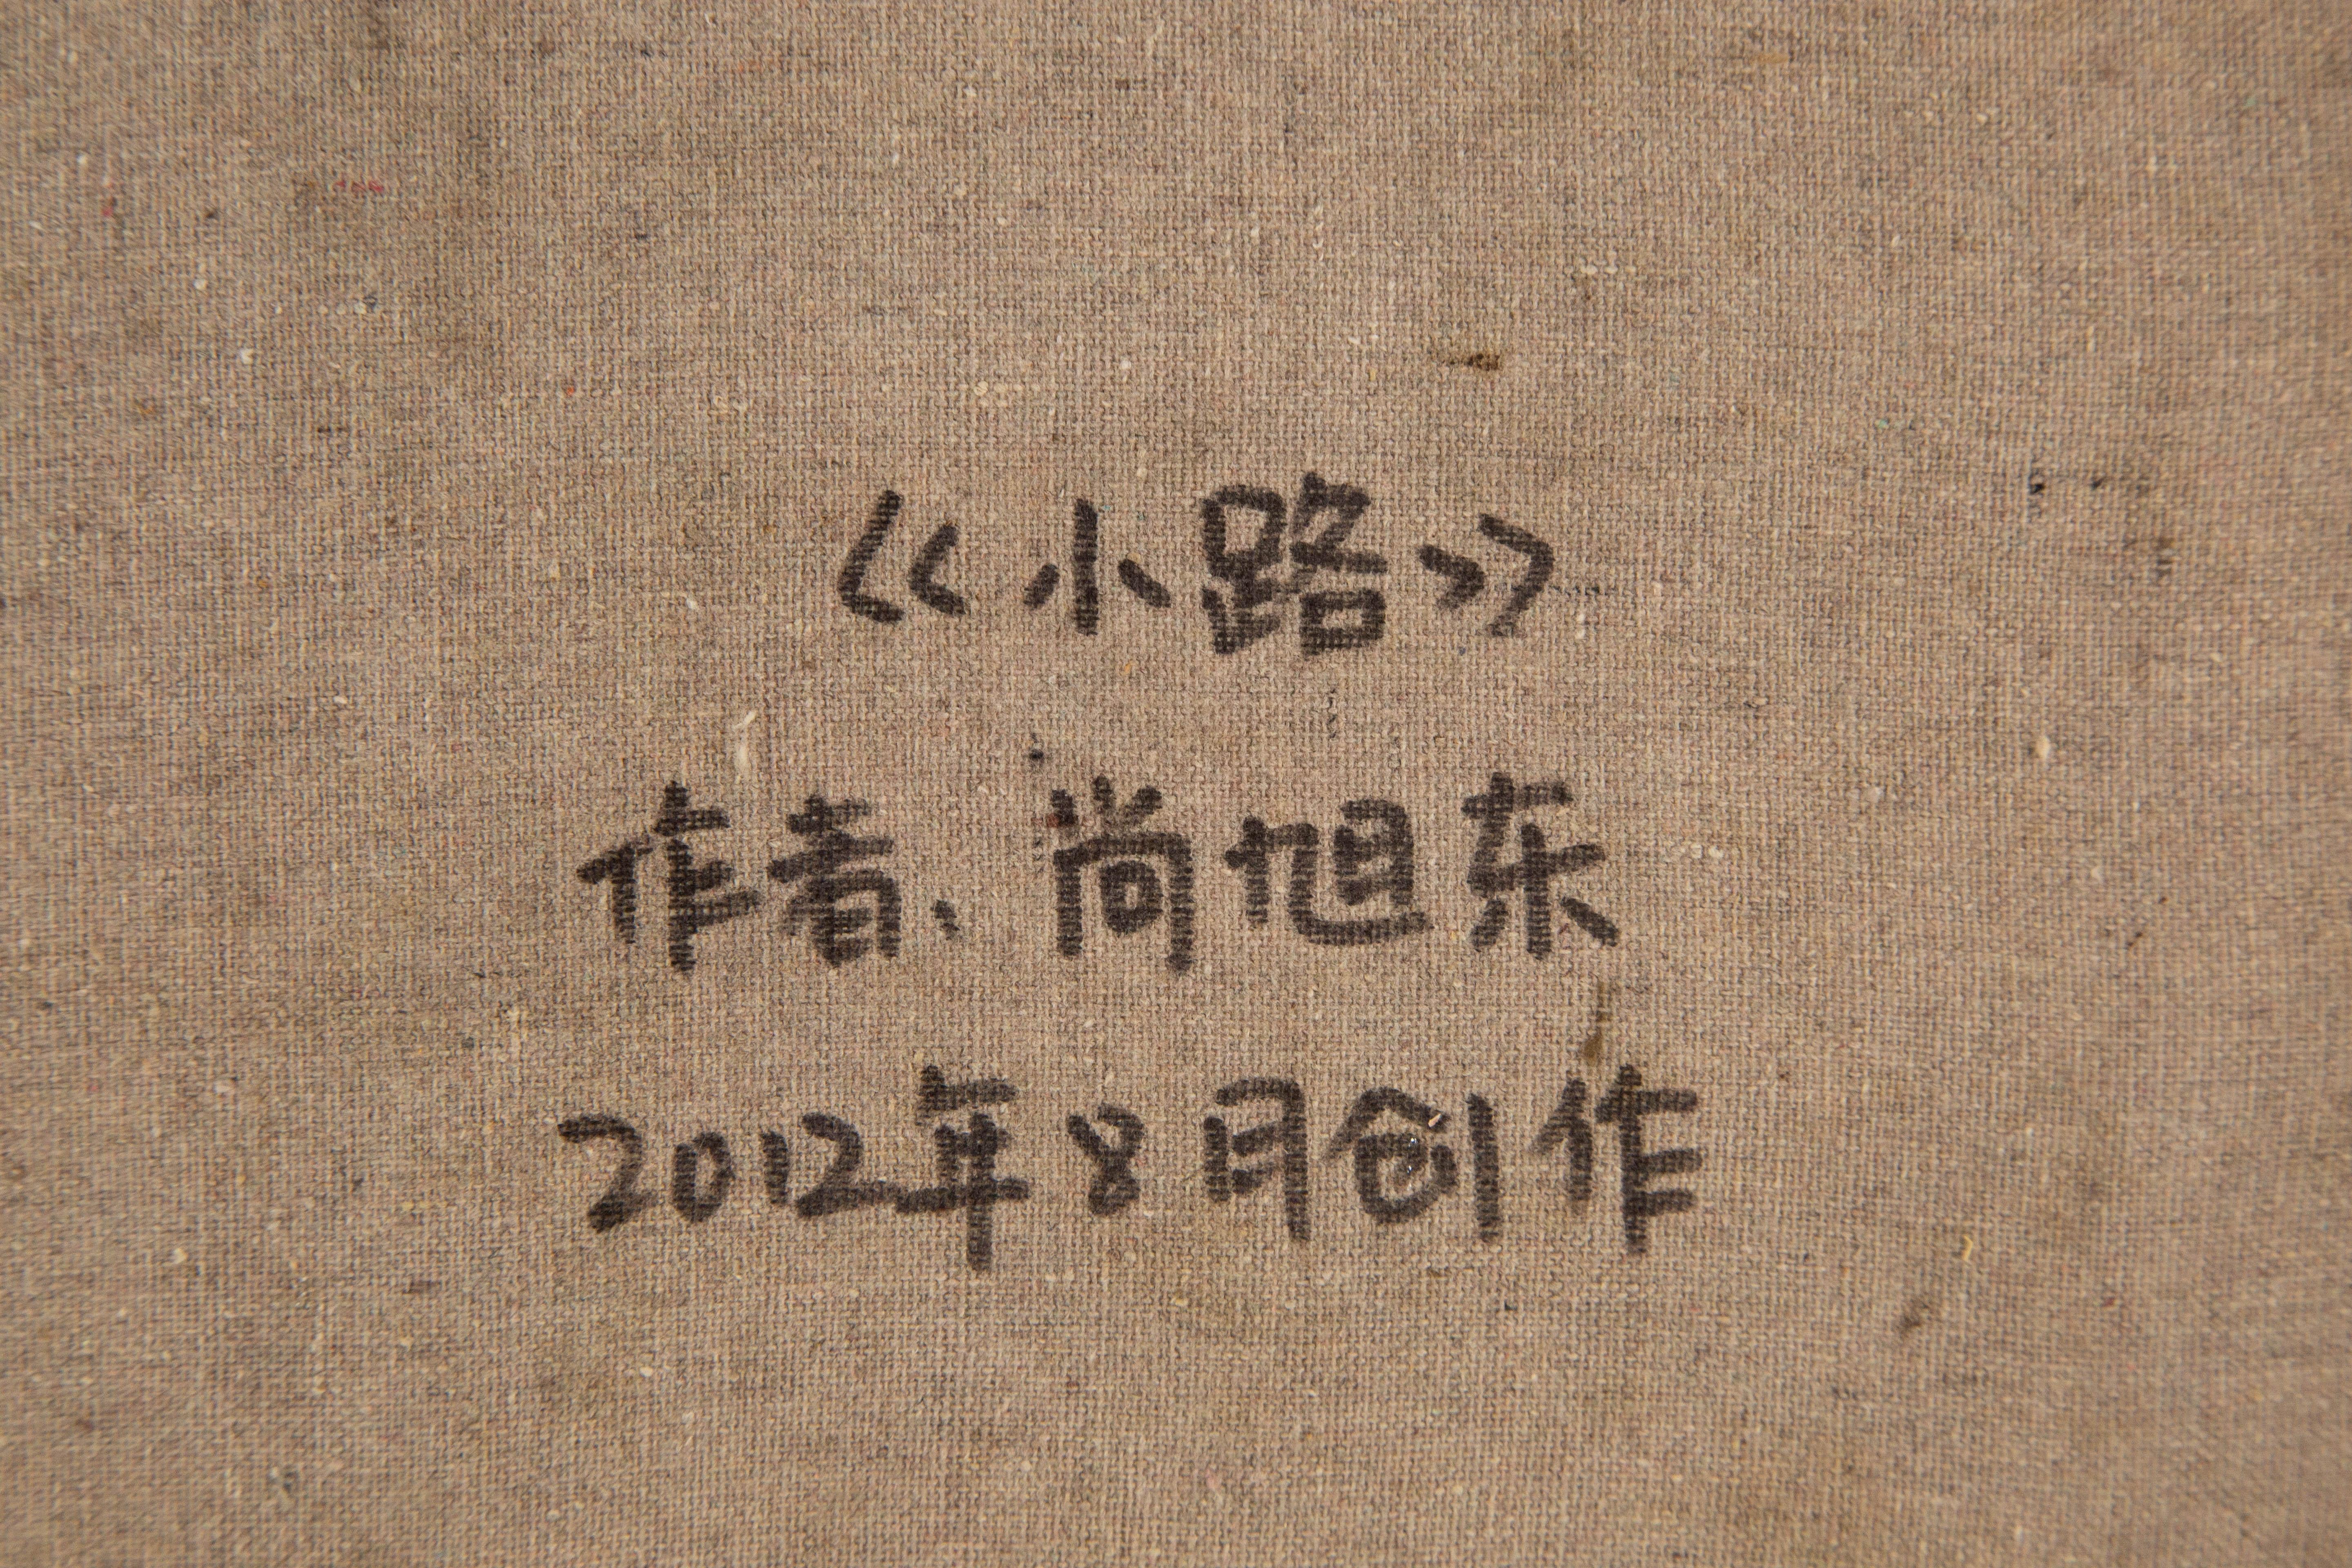 《小路》
作者、尚旭东
2012年8月创作